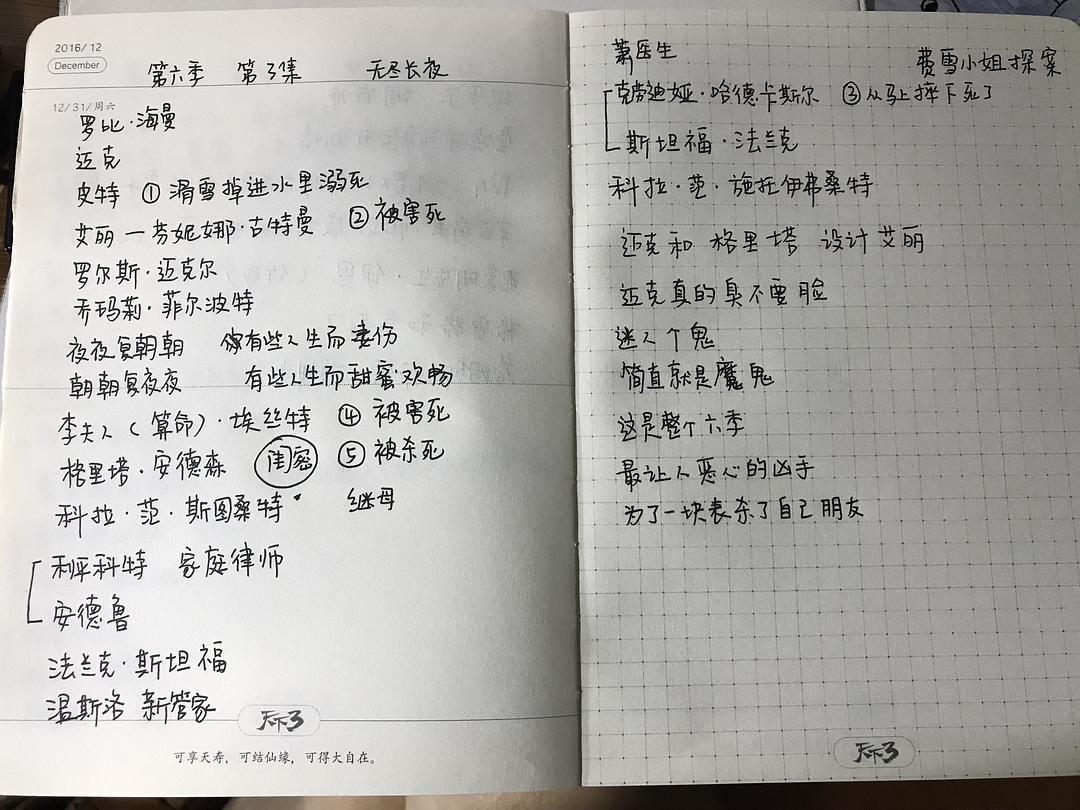 2016/ 12
December
第六季 第3集 无尽长夜
12/31/周六
罗比·海曼
迈克
皮特 ① 滑雪掉进水里溺死
艾丽 — 芬妮娜·古特曼 ② 被害死
罗尔斯·迈克尔
乔玛莉·菲尔波特
夜夜复朝朝 有些人生而凄伤
朝朝复夜夜 有些人生而甜蜜欢畅
李夫人（算命）·埃丝特 ④ 被害死
格里塔·安德森 闺密 ⑤ 被杀死
科拉·范·斯图桑特 继母
利平科特 家庭律师
安德鲁
法兰克·斯坦福
温斯洛 新管家
天下3
可享天寿，可结仙缘，可得大自在。
萧医生
费雪小姐探案
克劳迪娅·哈德卡斯尔 ③从马上摔下死了
斯坦福·法兰克
科拉·范·施托伊弗桑特
迈克和 格里塔 设计艾丽
迈克真的臭不要脸
迷人个鬼
简直就是魔鬼
这是整个六季
最让人恶心的凶手
为了一块表杀了自己朋友
天下3